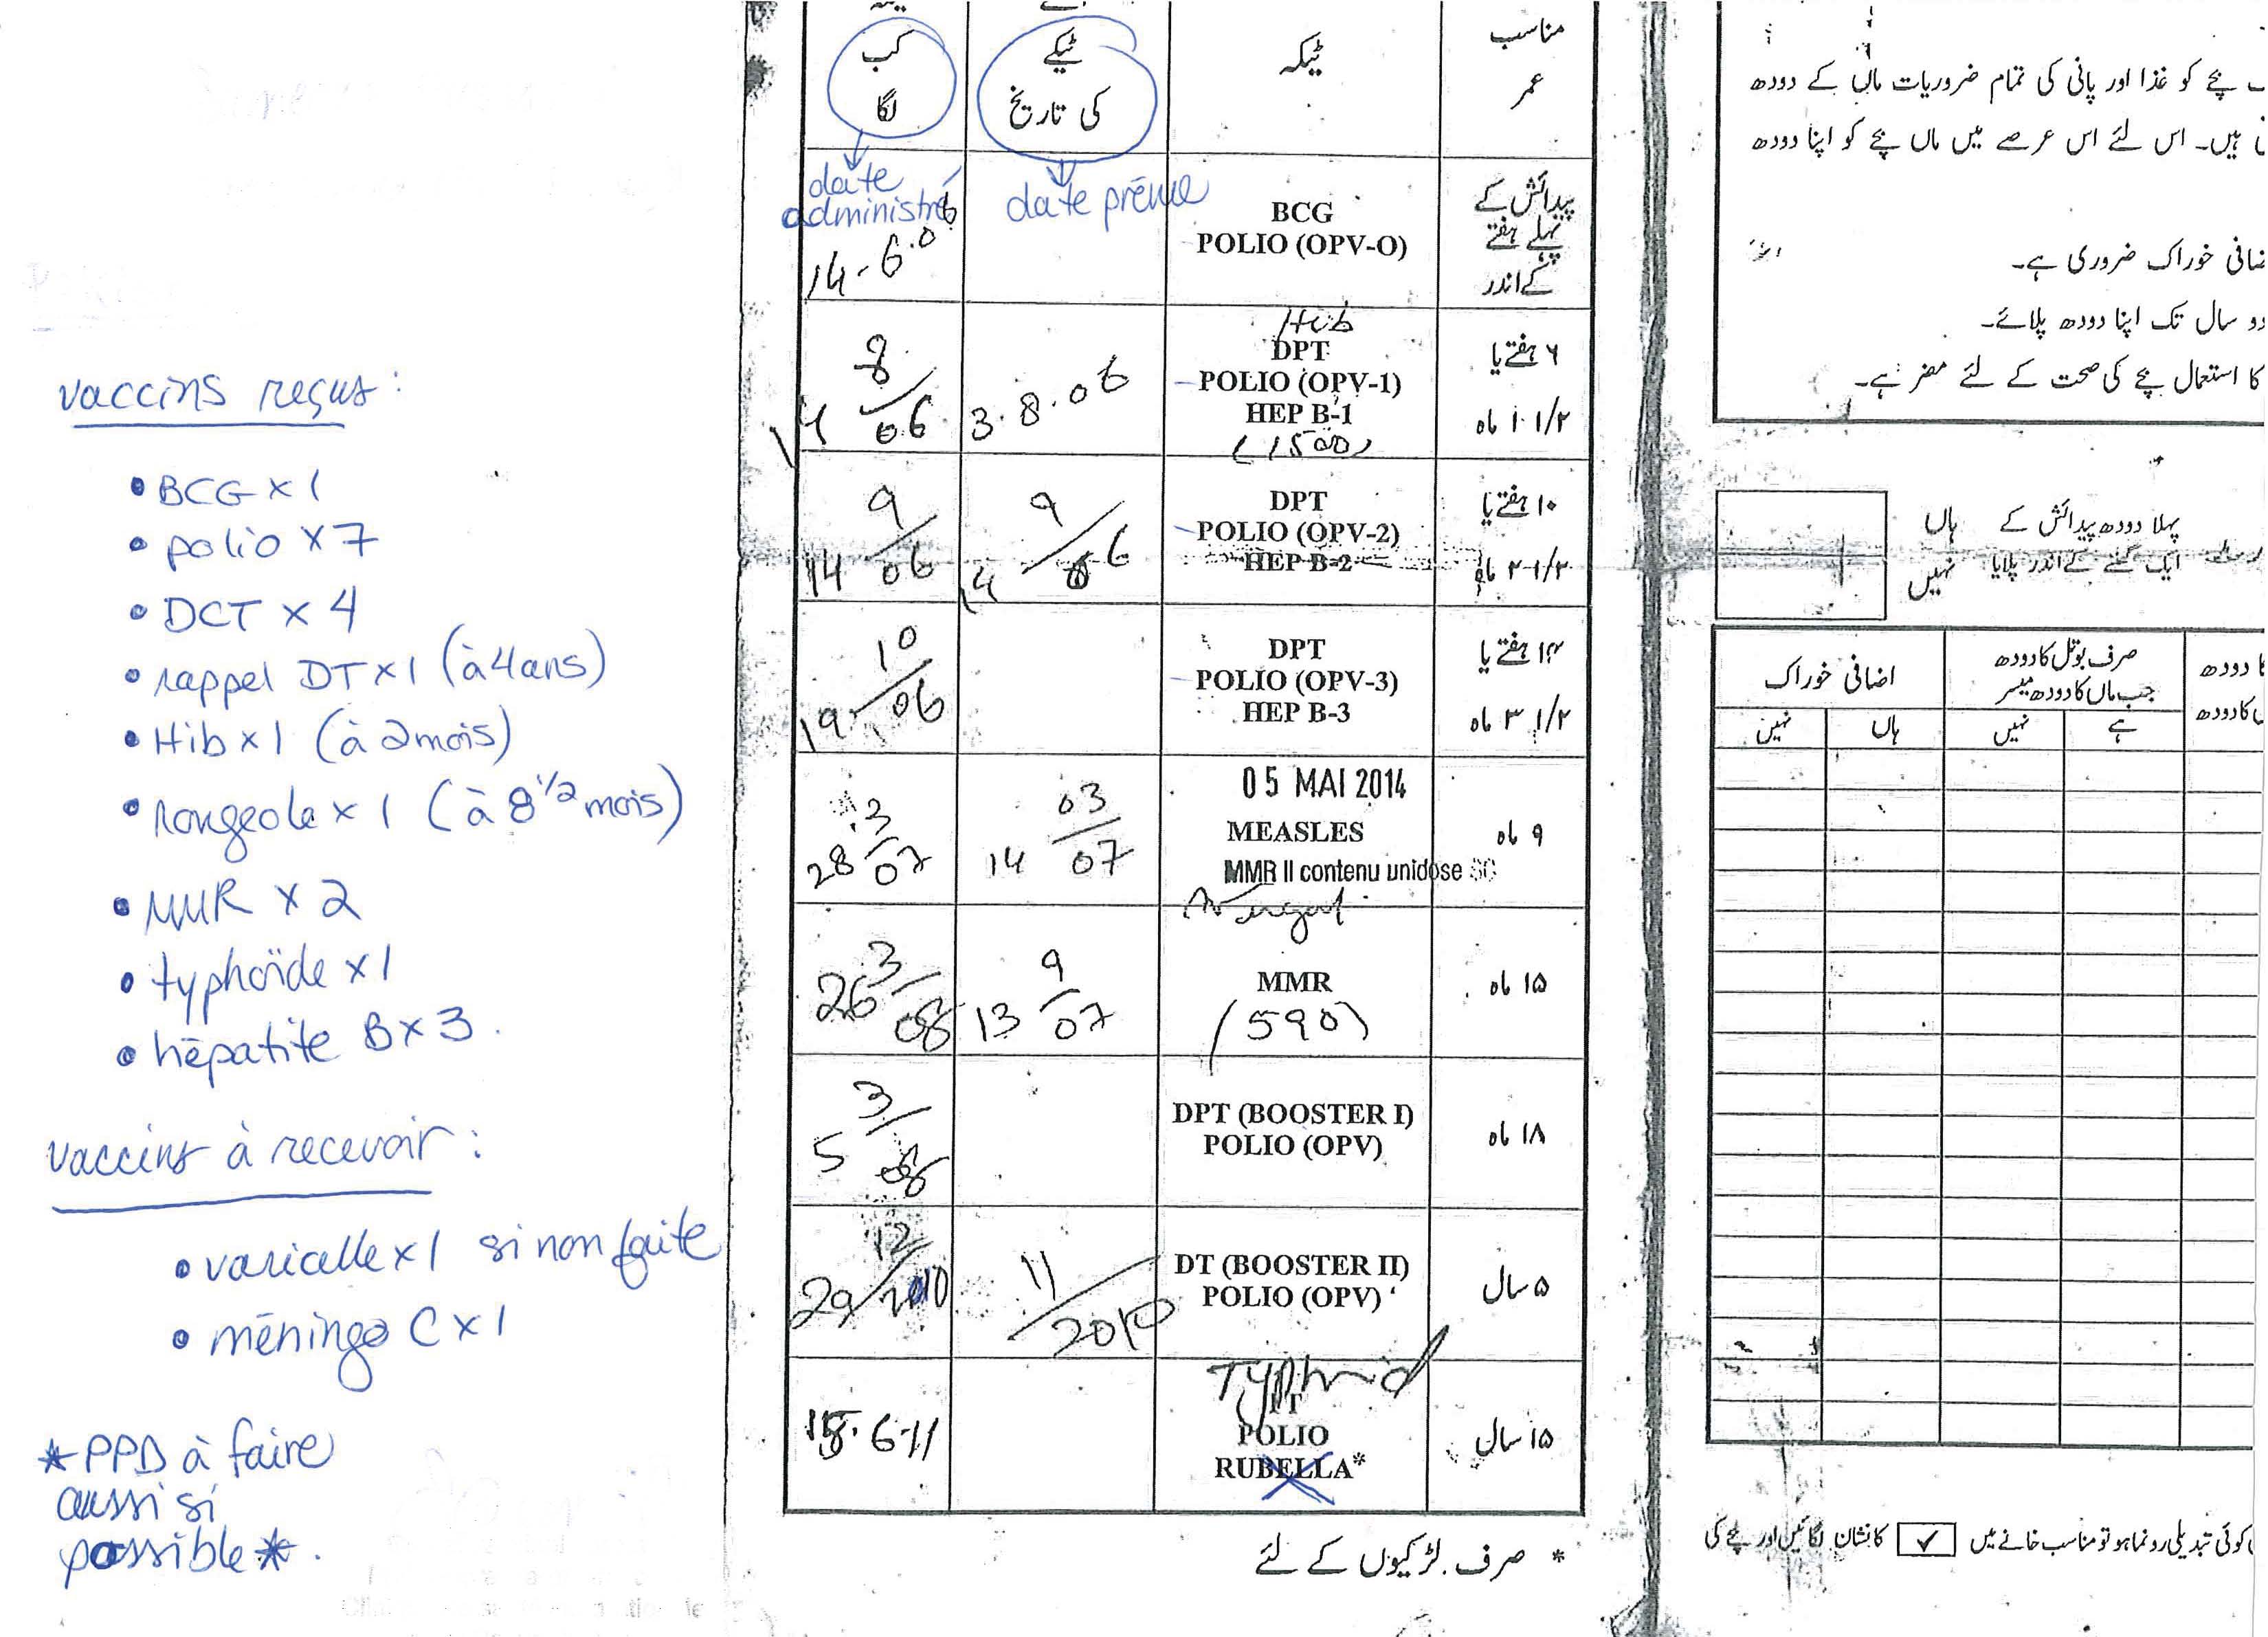 vaccins reçus :
• BCG x 1
• polio x 7
• DCT x 4
• rappel DT x 1 (à 4 ans)
• Hib x 1 (à 2 mois)
• rougeole x 1 (à 8 1/2 mois)
• MMR x 2
• typhoïde x 1
• hépatite B x 3.
vaccins à recevoir :
• varicelle x 1 si non faite
• méningo C x 1
* PPD à faire
aussi si
possible *.
کب لگا
ٹیکے کی تاریخ
ٹیکہ
مناسب عمر
date administré
date prévue
14-6.06
BCG
POLIO (OPV-O)
پیدائش کے
پہلے ہفتے
کے اندر
14 8/06
3.8.06
Hib
DPT
POLIO (OPV-1)
HEP B-1
(1500)
۶ ہفتے یا
۱-۱/۲ ماہ
14 9/06
14 9/06
DPT
POLIO (OPV-2)
HEP B-2
۱۰ ہفتے یا
۲-۱/۲ ماہ
19 10/06
DPT
POLIO (OPV-3)
HEP B-3
۱۴ ہفتے یا
۳ ۱/۲ ماہ
28 3/07
14 03/07
05 MAI 2014
MEASLES
MMR II contenu unidose SC
۹ ماہ
26 3/08
13 9/07
MMR
(590)
۱۵ ماہ
5 3/08
DPT (BOOSTER I)
POLIO (OPV)
۱۸ ماہ
29/12/2010
11/2010
DT (BOOSTER II)
POLIO (OPV)
۵ سال
15.6-11
Typhoid
TT
POLIO
RUBELLA*
۱۵ سال
* صرف لڑکیوں کے لئے
بچے کو غذا اور پانی کی تمام ضروریات ماں کے دودھ
ہیں۔ اس لئے اس عرصے میں ماں بچے کو اپنا دودھ
خوراک ضروری ہے۔
دو سال تک اپنا دودھ پلائے۔
کا استعمال بچے کی صحت کے لئے مضر ہے۔
پہلا دودھ پیدائش کے
ایک گھنٹے کے اندر پلایا
ہاں
نہیں
کا دودھ
کا دودھ
صرف بوتل کا دودھ
جب ماں کا دودھ میسر
اضافی خوراک
ہے
نہیں
ہاں
نہیں
کوئی تبدیلی رونما ہو تو مناسب خانے میں ✓ کا نشان لگائیں اور بچے کی